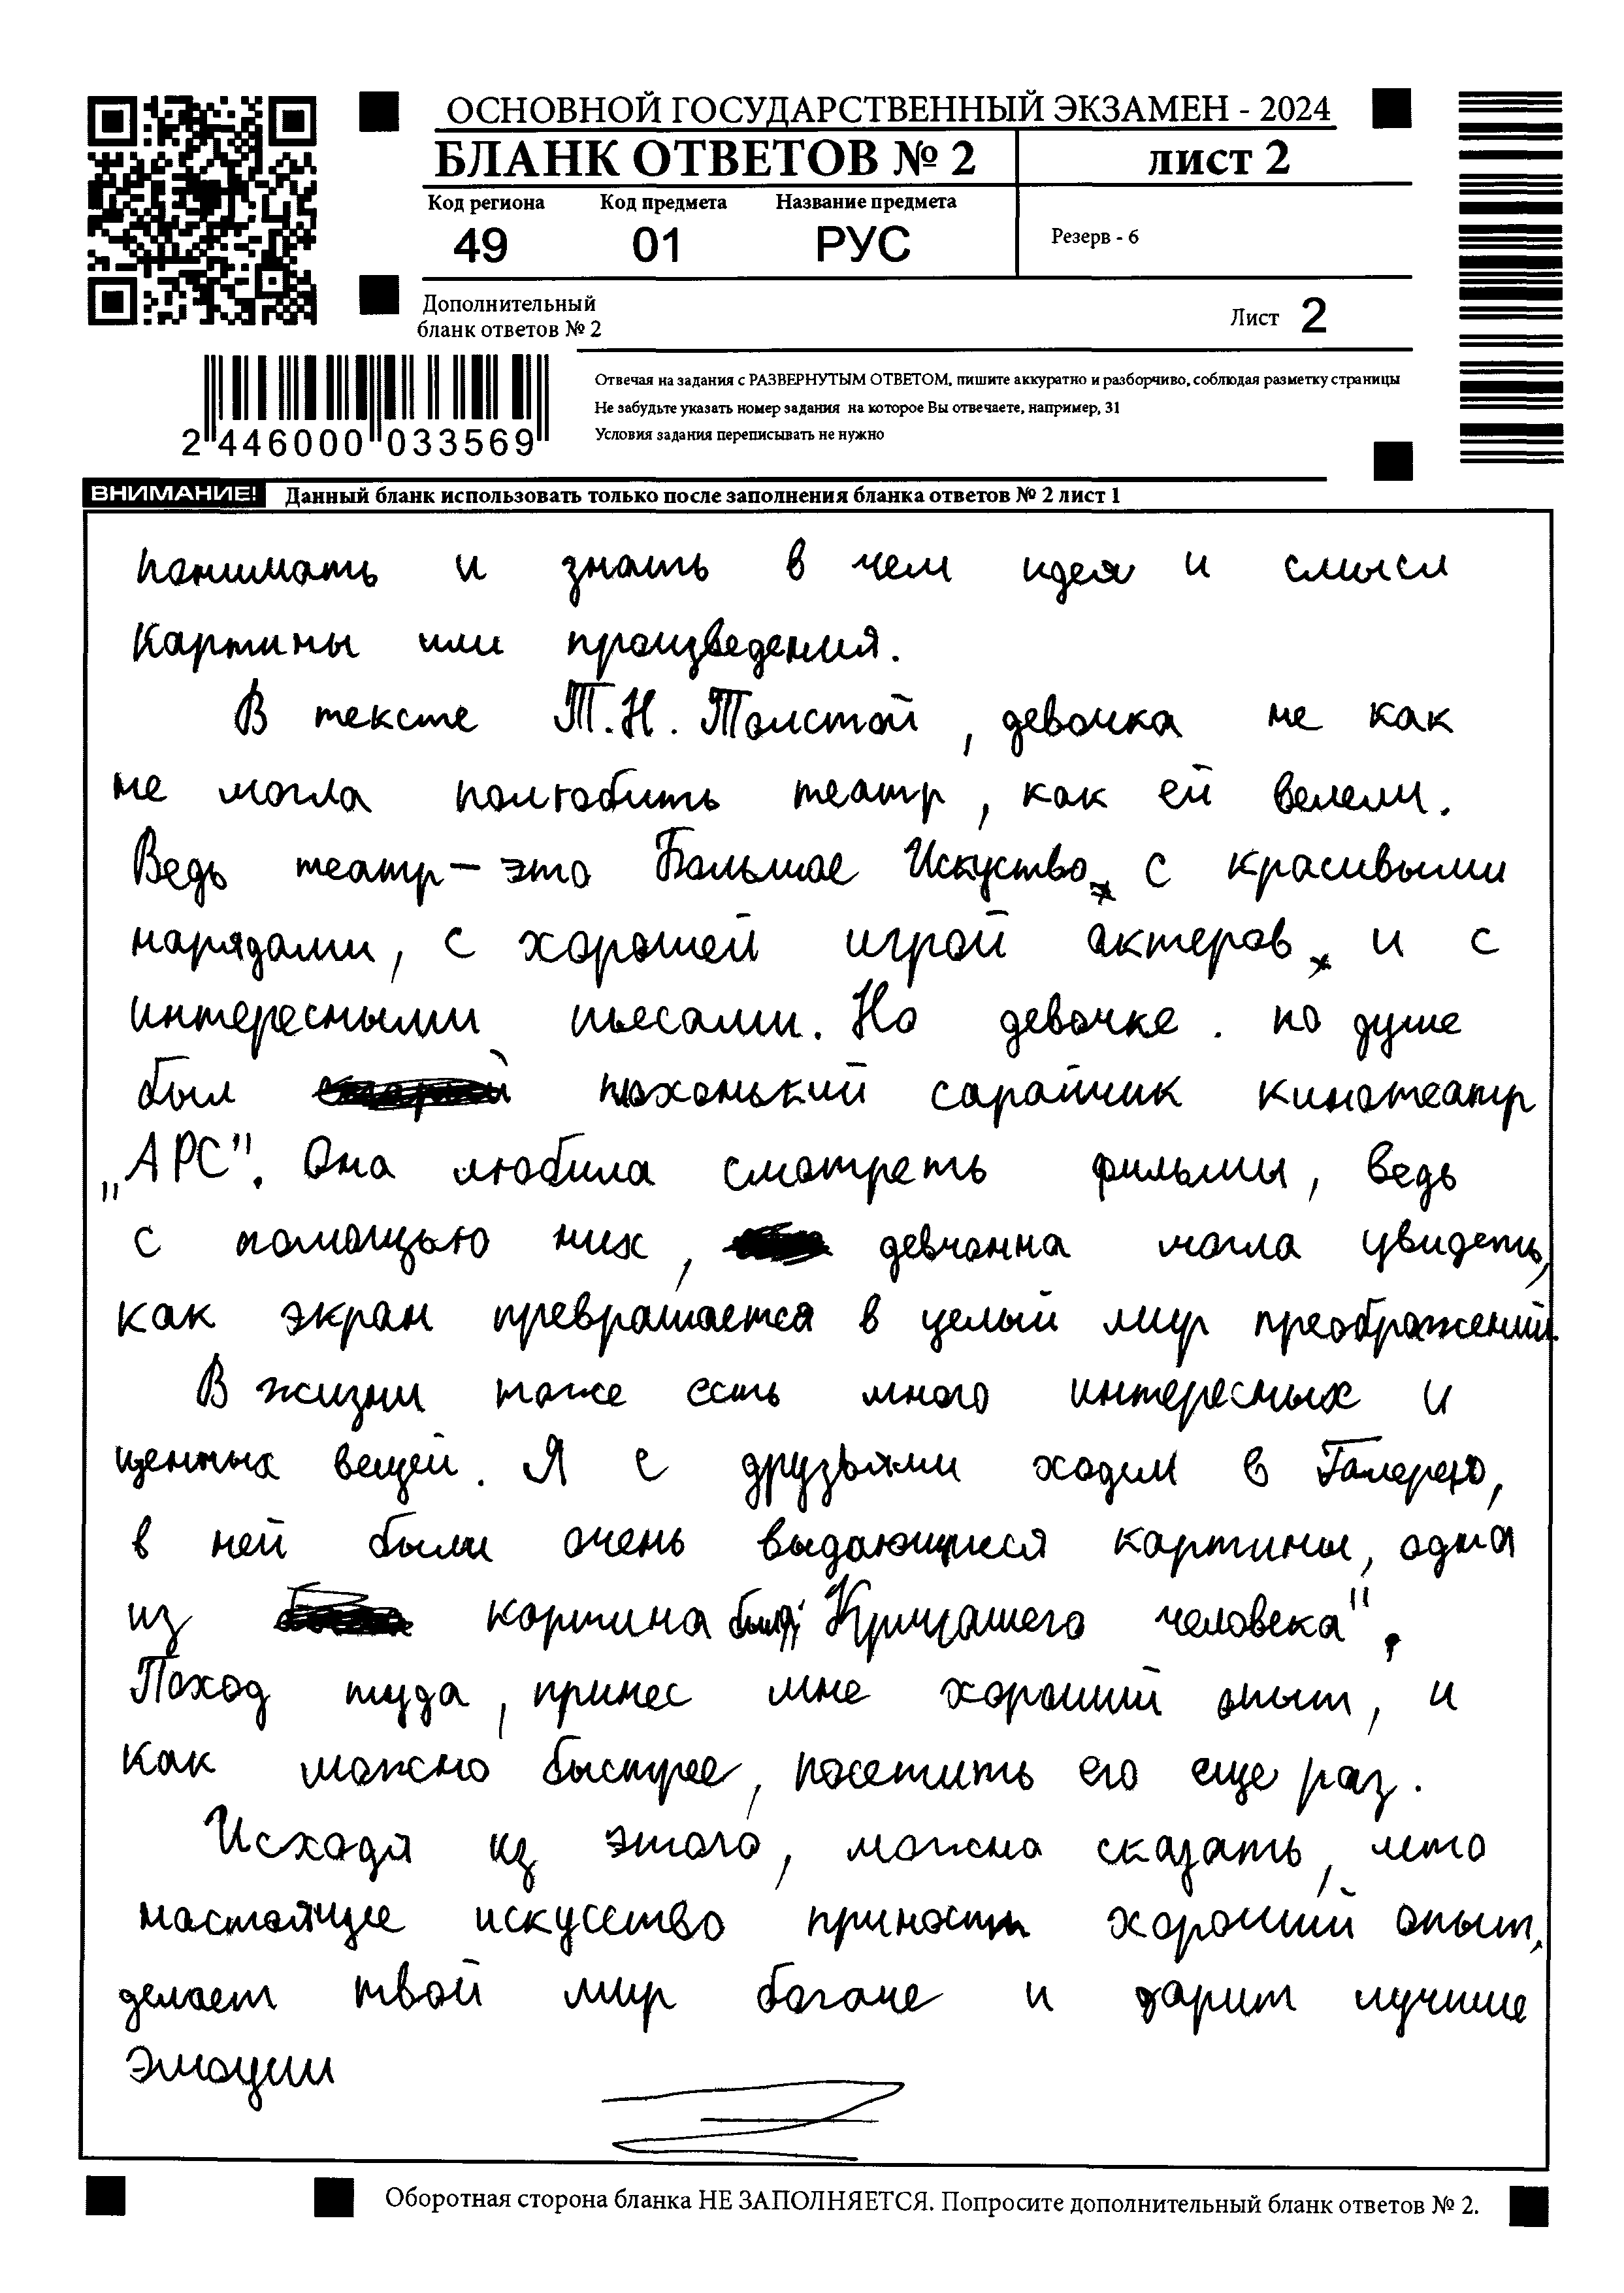 ОСНОВНОЙ ГОСУДАРСТВЕННЫЙ ЭКЗАМЕН - 2024
БЛАНК ОТВЕТОВ № 2 лист 2
Код региона Код предмета Название предмета
49 01 РУС Резерв - 6
Дополнительный
бланк ответов № 2
Лист 2
Отвечая на задания с РАЗВЕРНУТЫМ ОТВЕТОМ, пишите аккуратно и разборчиво, соблюдая разметку страницы
Не забудьте указать номер задания на которое Вы отвечаете, например, 31
Условия задания переписывать не нужно
2 446000 033569
ВНИМАНИЕ! Данный бланк использовать только после заполнения бланка ответов № 2 лист 1
понимать и знать в чем идея и смысл
картины или произведения.
В тексте Т.Н. Толстой, девочка не как
не могла полюбить театр, как ей велели.
Ведь театр – это Большое Искуство с красивыми
нарядами, с хорошей игрой актеров и с
интересными пьесами. Но девочке по душе
был плохонький сарайчик кинотеатр
„АРС". Она любила смотреть фильмы, ведь
с помощью них, девчонка могла увидеть,
как экран превращается в целый мир преображений.
В жизни тоже есть много интересных и
ценных вещей. Я с друзьями ходил в Галерею,
в ней были очень выдающиеся картины, одна
из картина была „Кричащего человека".
Поход туда, принес мне хороший опыт, и
как можно быстрее, посетить его еще раз.
Исходя из этого, можно сказать, что
настоящее искусство приносит хороший опыт,
делает твой мир богаче и дарит лучшие
эмоции
Оборотная сторона бланка НЕ ЗАПОЛНЯЕТСЯ. Попросите дополнительный бланк ответов № 2.